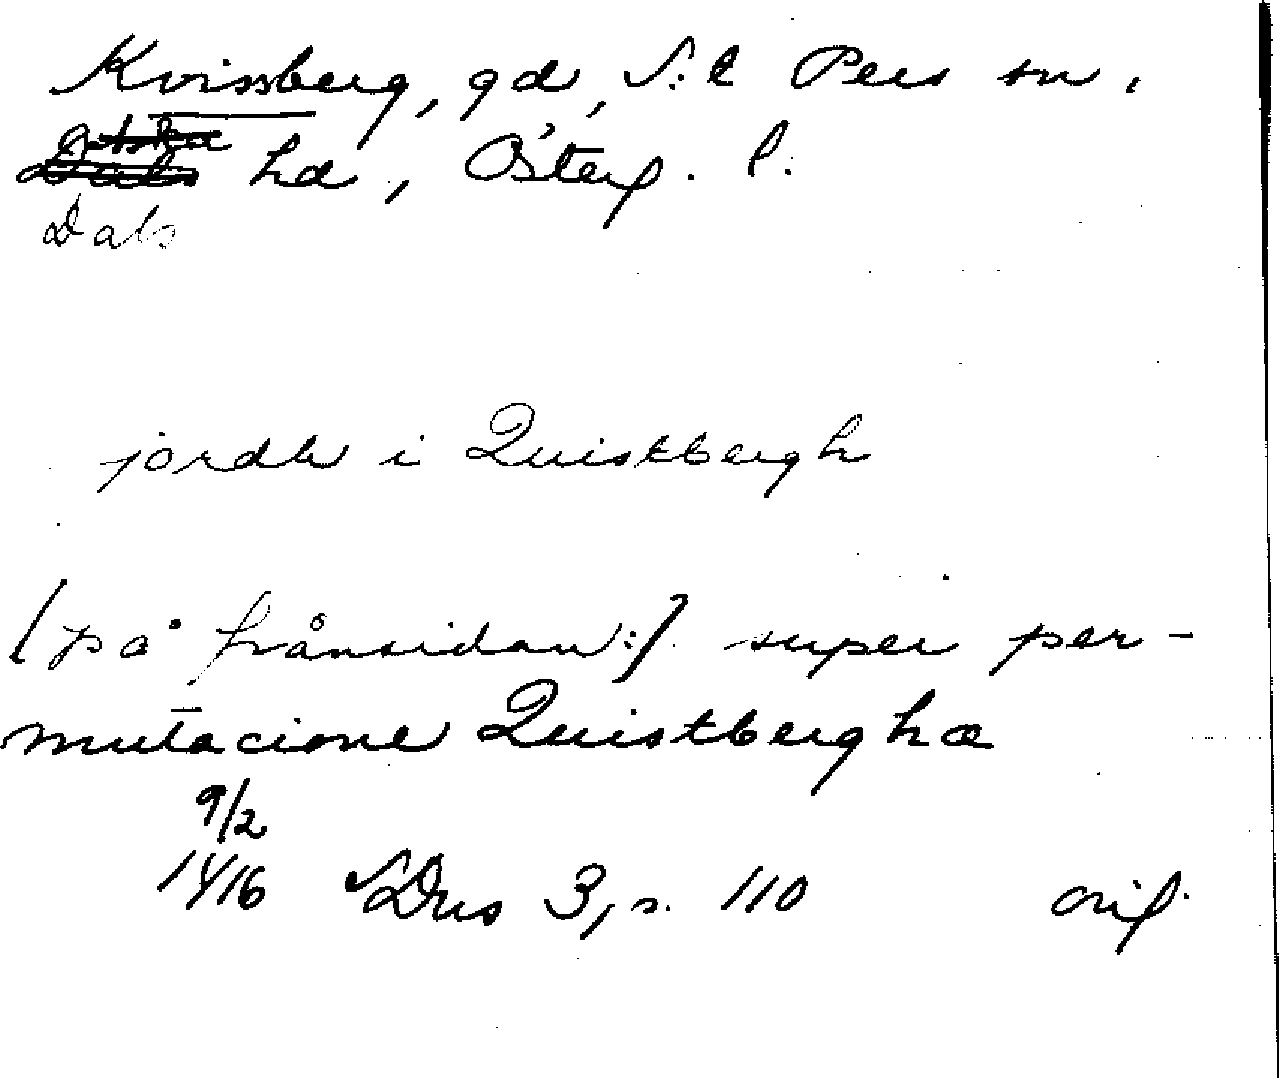 Kvissberg, gd, S:t Pers sn,
Dals hd, Österg. l.
Dals
jordh i Quistbergh
[på frånsidan:] super per-
mutacione Quistberghæ
9/2
1416 SDns 3, s. 110 orig.